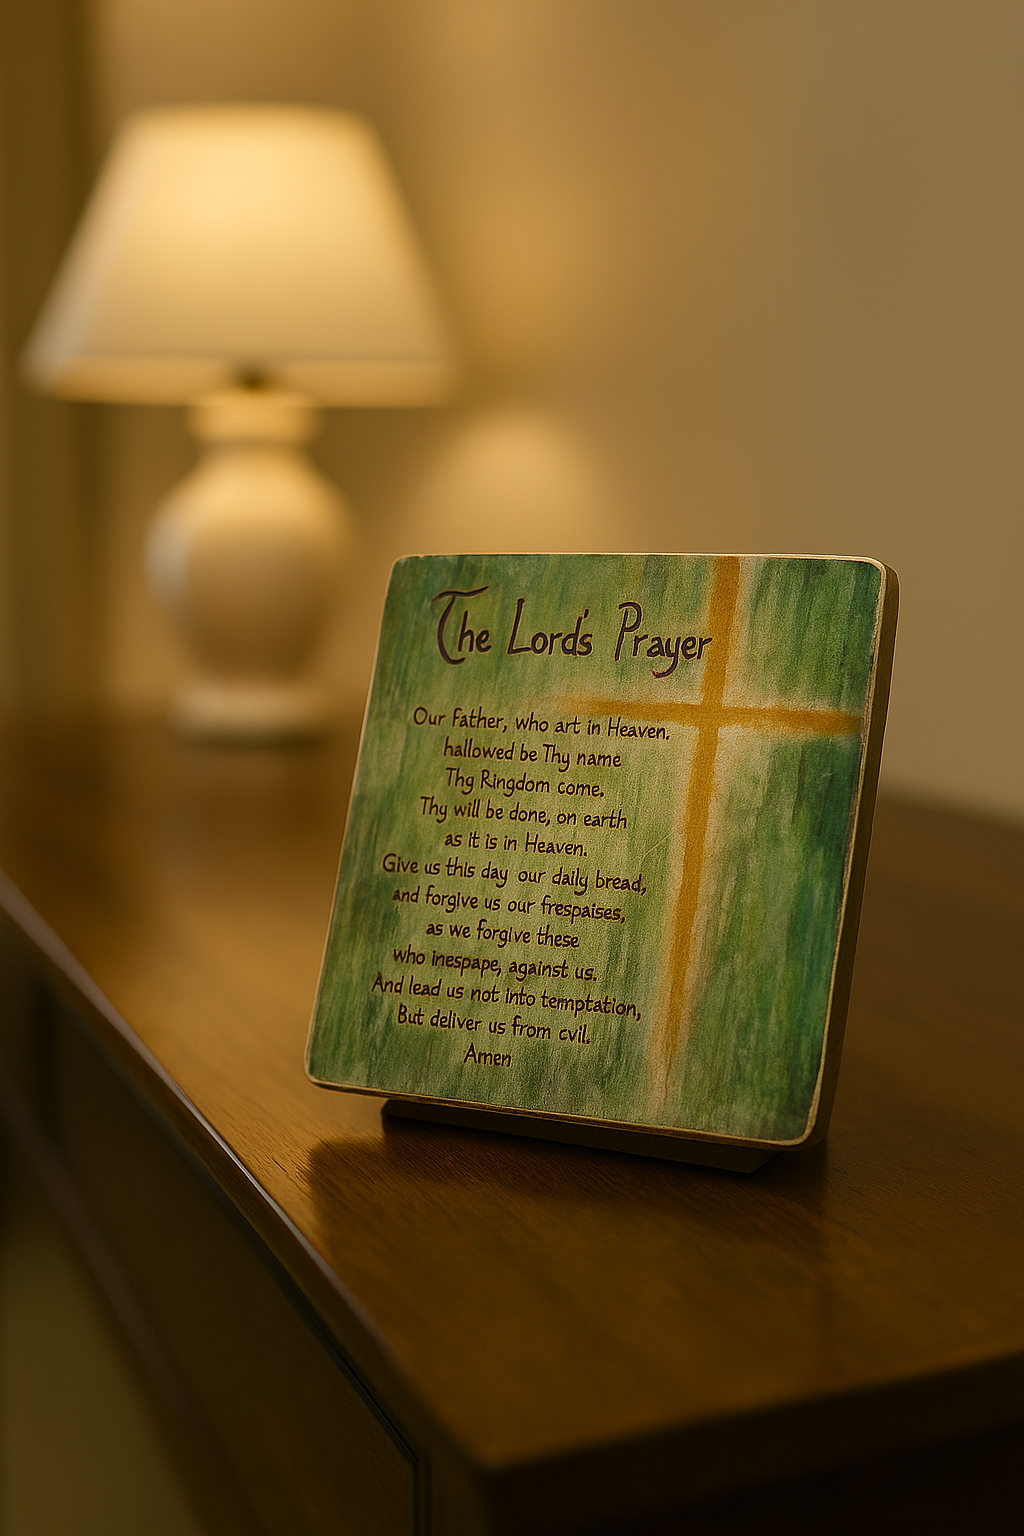 The Lord's Prayer
Our Father, who art in Heaven.
hallowed be Thy name
Thg Ringdom come.
Thy will be done, on earth
as it is in Heaven.
Give us this day our daily bread,
and forgive us our frespaises,
as we forgive these
who inespape, against us.
And lead us not into temptation,
But deliver us from cvil.
Amen